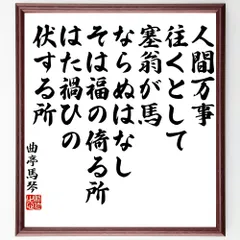 人間万事
往くとして
塞翁が馬
ならぬはなし
そは福の倚る所
はた禍ひの
伏する所
曲亭馬琴